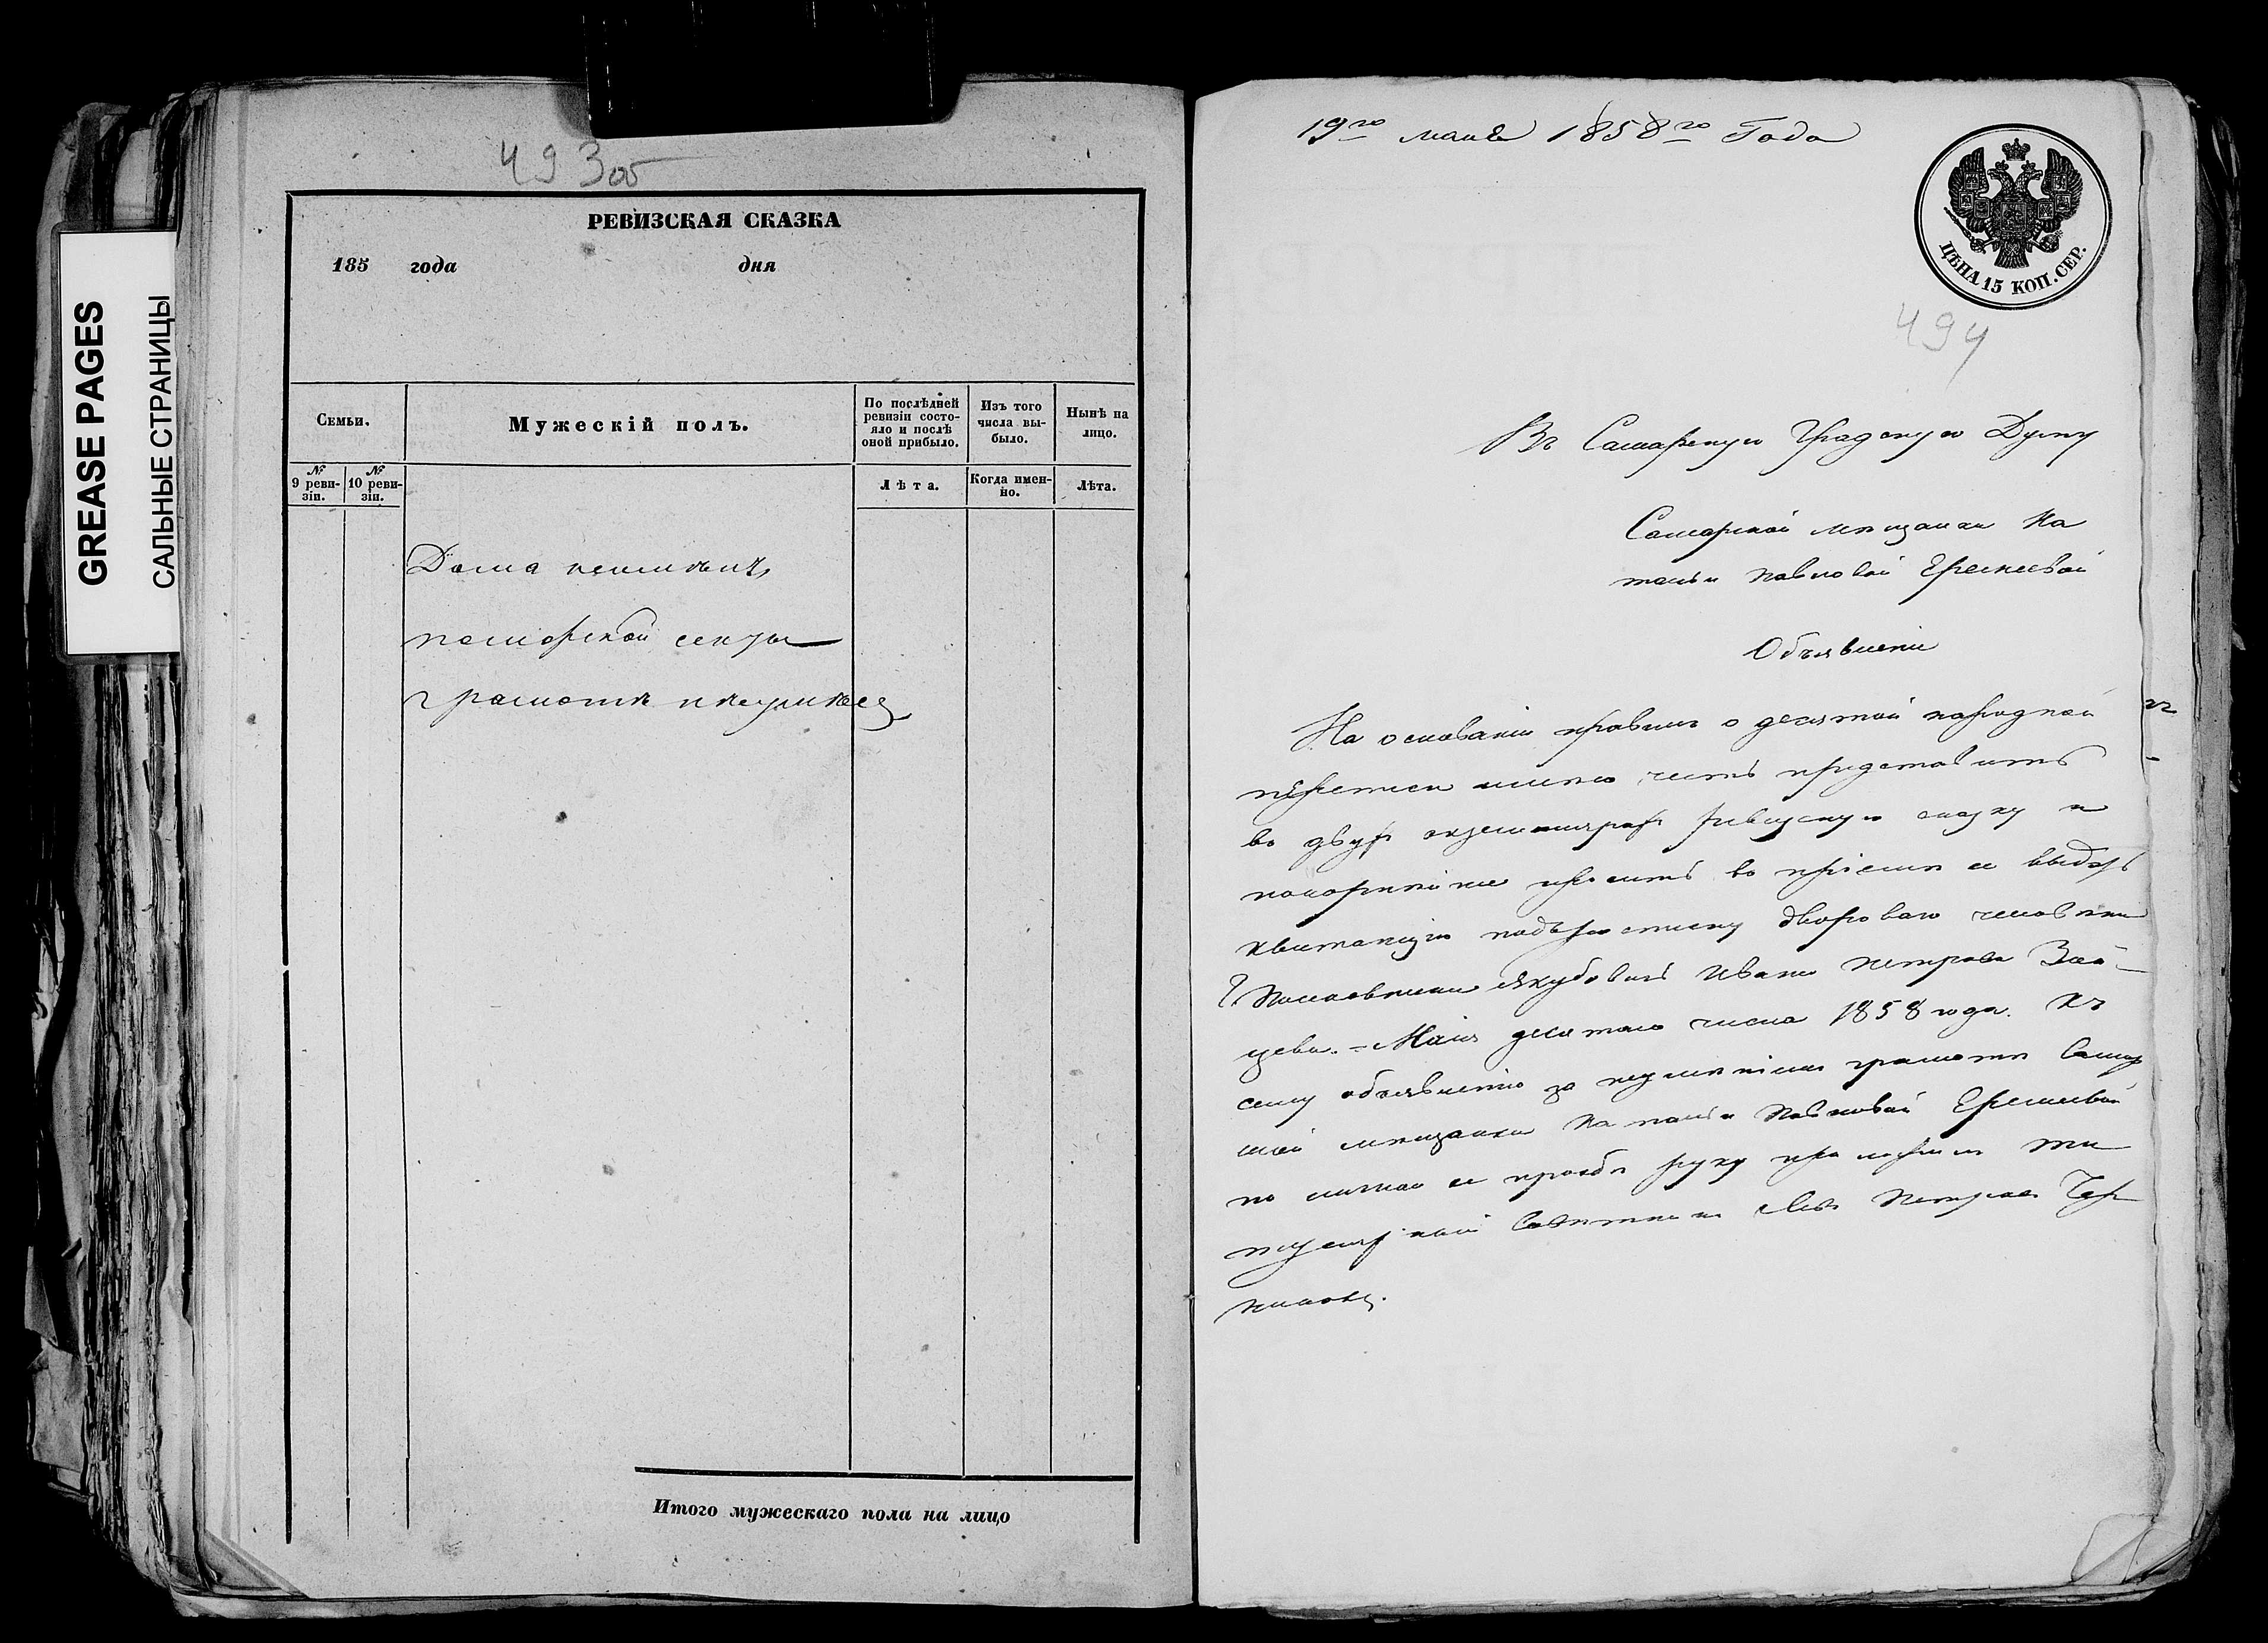 GREASE PAGES
САЛЬНЫЕ СТРАНИЦЫ
493об
РЕВИЗСКАЯ СКАЗКА
185 года дня
Семьи.
Мужескій полъ.
По послѣдней ревизіи состо-
яло и послѣ оной прибыло.
Изъ того числа вы-
было.
Нынѣ на лицо.
№ 9 реви-
зіи.
№ 10 реви-
зіи.
Лѣта.
Когда имен-
но.
Лѣта.
Дома неимѣитъ
поморской секты
грамотѣ неумѣеъ
Итого мужескаго пола на лицо
19го маия 1858го Года
ЦѢНА 15 КОП. СЕР.
494
Въ Самарскую Градскую Думу
Самарской мѣщанки На
тальи Павловой Еремеевой
Объявленіе
На основаніи правилъ о десятой народной
переписи имѣю честь представить
во двухъ экземплярахъ ревизскую сказку и
покорнѣйше просить во пріемѣ ее выдать
квитанцію подъросписку двороваго человѣка
Г. Полковника Якубовичъ Ивана Петрова Зай-
цева. - Маия десятаго числа 1858 года. Къ
сему объявленію за неумѣніемъ грамотѣ Самар
ской мѣщанки Натальи Павловой Еремеевой
по личной ее прозьбѣ руку приложилъ Ти
тулярный Совѣтникъ Левъ Петровъ